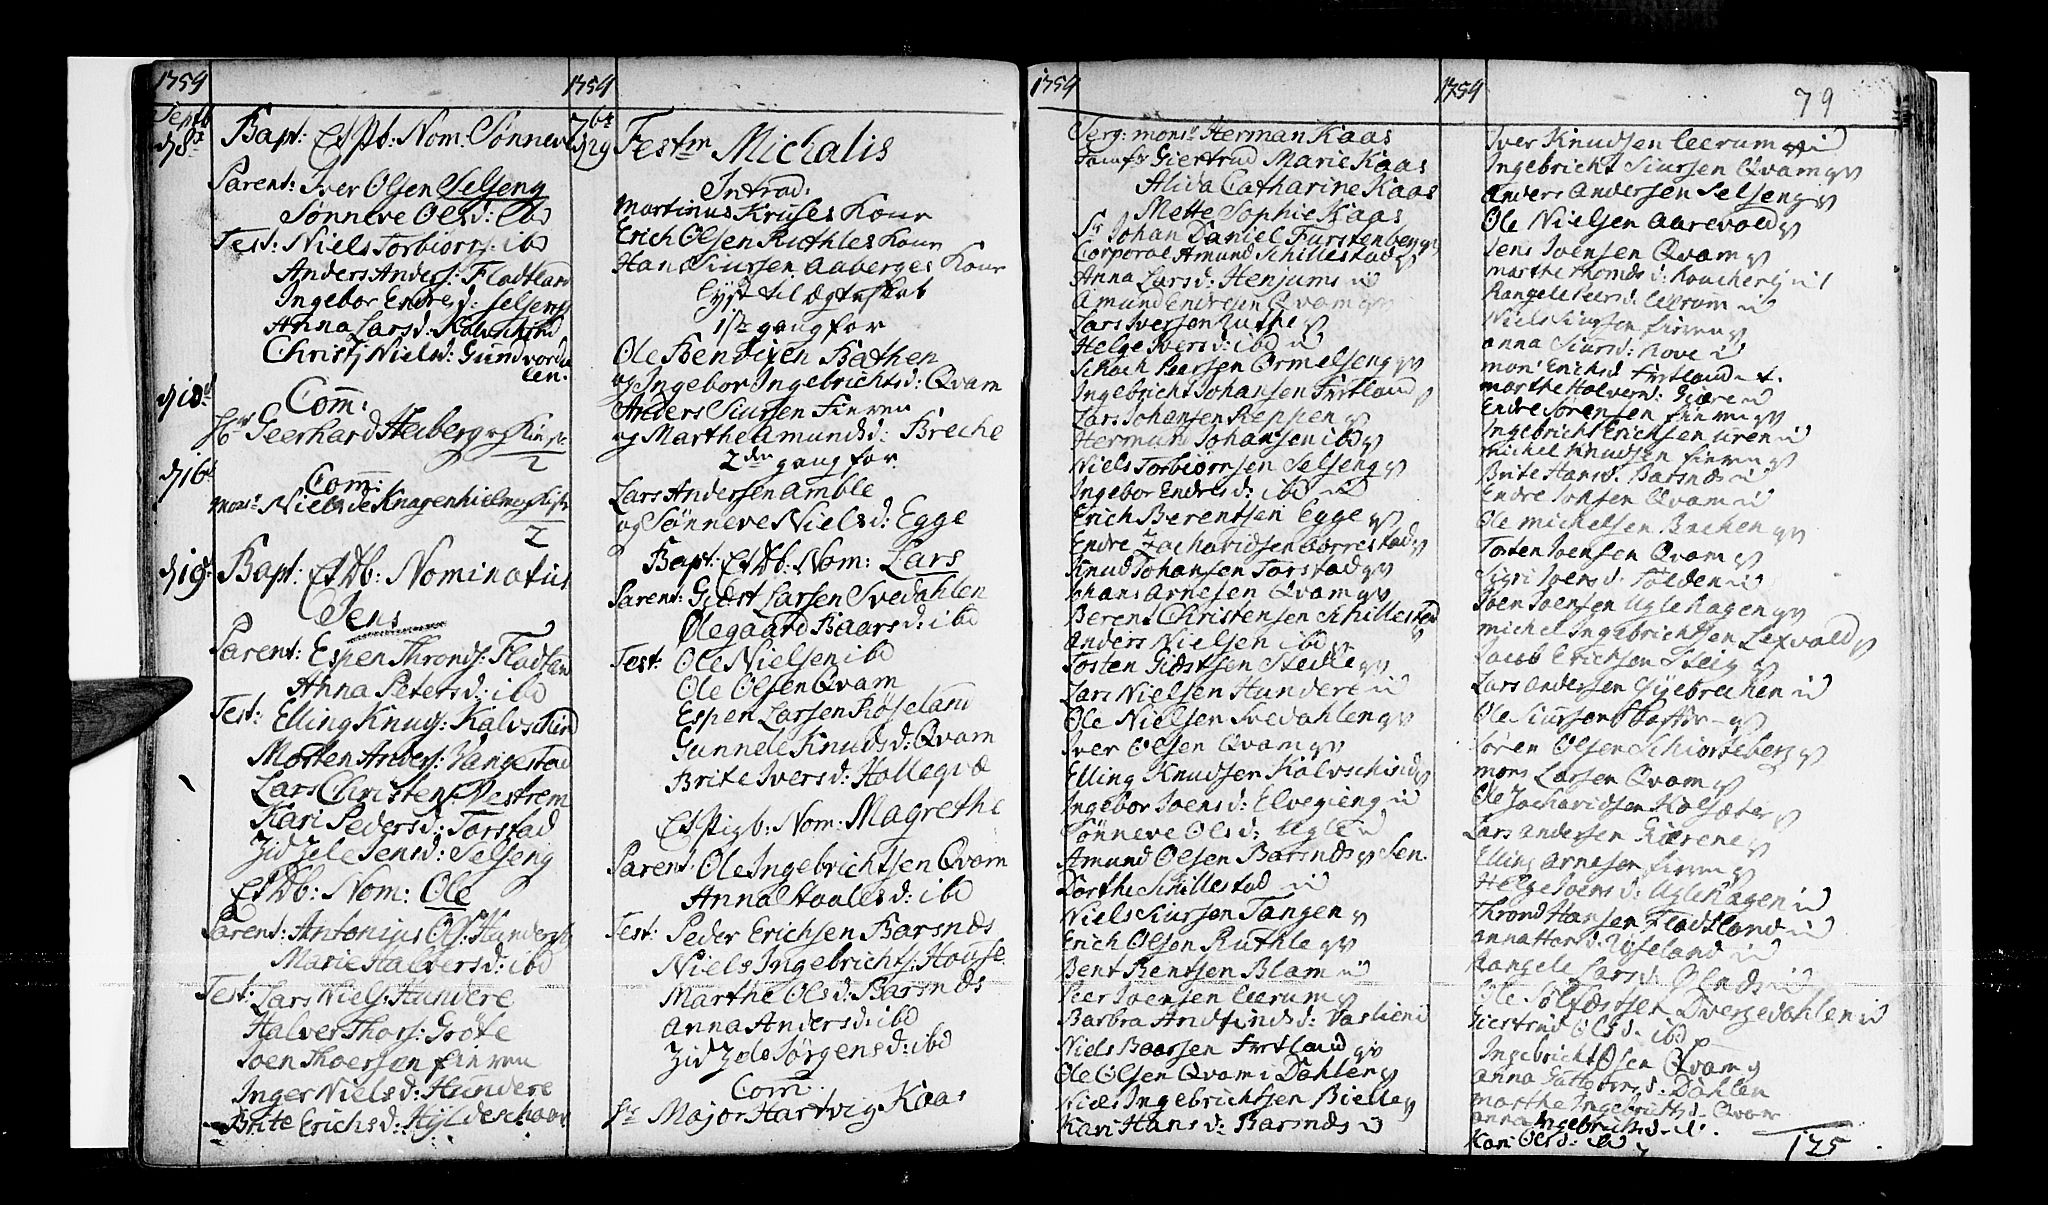 1759
Septb
d 8de
Bapt: Et Pb: Nom: Sönneve
Parent: Iver Olsen Selseng
Sönneve Olsd: ibd
Test: Niels Torbiörns: ibd
Anders Anders: Fladtland
Ingebor Endresd: Selseng
Anna Larsd: Kalvschind
Christj Nielsd: Gundvorda
len.
d 10d
Com:
Hr Geerhard Heiberg og
2
d 16d
Com:
Monsr Niels de Knagenhielm og
2
d 19d
Bapt: Et Pb: Nominatus
Jens
Parent: Espen Thronds: Fladtland
Anna Petersd: ibd
Test: Elling Knuds: Kalvschind
Morten Anders: Vangestad
Lars Christens: Vestrem
Kari Pedersd: Torstad
Zidzele Jensd: Selseng
Et Pb: Nom: Ole
Parent: Antonius Ols: Hundere
Marie Halversd: ibd
Test: Lars Niels: Hundere
Halver Thors: Gröte
Joen Thoersen Finven
Inger Nielsd: Hundere
Brite Erichsd: Hyldeschaar
1759
7br
d 29
Festm Michalis
Introd:
Martinus Kruses Kone
Erich Olsen Ruthles Kone
Hans Siursen Aaberges Kone
Lyst til Ægteskab
1ste gang for
Ole Bendixen Bathen
og Ingebor Ingebrichtsd: Qvam
Anders Siursen Finven
og Marthe Amundsd: Breche
2den gang for
Lars Andersen Amble
og Sönneve Nielsd: Egge
Bapt: Et Pb: Nom: Lars
Parent: Giæst Larsen Svedahlen
Olegaard Baarsd: ibd
Test: Ole Nielsen ibd
Ole Olsen Qvam
Espen Larsen Röseland
Gunnele Knudsd: Qvam
Brite Iversd: Holleqvæ
Et Pigb: Nom: Magrethe
Parent: Ole Ingebrichtsen Qvam
Anna Staalesd: ibd
Test: Peder Erichsen Barsnds
Niels Ingebrichts: House
Marthe Olsd: Barsnds
Anna Andersd: ibd
Zidzele Jörgensd: ibd
Com
Hr Major Hartvig Kaas
1759
Serg: monsr Herman Kaas
Jomfr Giertrud Marie Kaas
Alida Catharine Kaas
Mette Sophie Kaas
Sr Johan Daniel Furstenberg
Corporal Amund Schillestad
Anna Larsd: Henjums
Amund Endresen Qvam
Lars Iversen Ruthe
Helge Iversd: ibd
Schach Peersen Ormelseng
Ingebricht Johansen Frtland
Lars Johansen Reppen
Herman Johansen ibd
Niels Torbiörnsen Selseng
Ingebor Endresd: ibd
Erich Berentsen Egge
Endre Zacharidsen Borrestad
Knud Johansen Torstad
Johans Arnesen Qvam
Berent Christensen Schillestad
Anders Nielsen ibd
Tosten Giæstsen Stedie
Lars Nielsen Hundere
Ole Nielsen Svedahlen
Iver Olsen Qvam
Elling Knudsen Kalvschind
Ingebor Joensd: Elvegieng
Sönneve Olsd: Ugle
Amund Olsen Barsnds Sen.
Dorthe Schillestad
Niels Siursen Tangen
Erich Olsen Ruthle
Bent Bentsen Blam
Peer Joensen Eerum
Barbra Andfindsd: Vaslien
Niels Baarsen Frtland
Ole Olsen Qvam i Dahlen
Niels Ingebrichtsen Bielle
Kari Hansd: Barsnds
1759
79
Iver Knudsen Eerum
Ingebricht Siursen Qvam
Anders Andersen Selseng
Ole Nielsen Aarevold
Jens Joensen Qvam
Marthe Thomdsd:
Rangele Peersd: Eerum
Niels Siursen Finven
Anna Siursd: Hove
Mons Erichsd Frtland
Marthe Halversd:
Endre Sörensen Finven
Ingebricht Erichsen Uren
Michel Knudsen Finven
Brite Hansd: Barsnds
Endre Jonsen Qvam
Ole Michelsen Bachen
Tosten Joensen Qvam
Sigri Joensd: Tölden
Joen Joensen Uglehagen
Michel Ingebrichtsen Lexvold
Jacob Erichsen Steig
Lars Andersen Gyebrechen
Ole Siursen
Sören Olsen Schiorteberg
Mons Larsen Qvam
Ole Zacharidsen Kolsæter
Lars Andersen Kiærene
Elling Arnesen Finven
Helge Joensd: Uglehagen
Thrond Hansen Fladtland
Anna Hansd: Röseland
Rangele Larsd: Olnds
Ole Sölfæstsen Dvergedahlen
Giertrud Olsd: ibd
Ingebricht Olsen Qvam
Anna Gutthormsd: Dahlen
Marthe Ingebrichtsd: Qvam
Anna Ingebrichtsd:
Kari Olsd: ibd
125